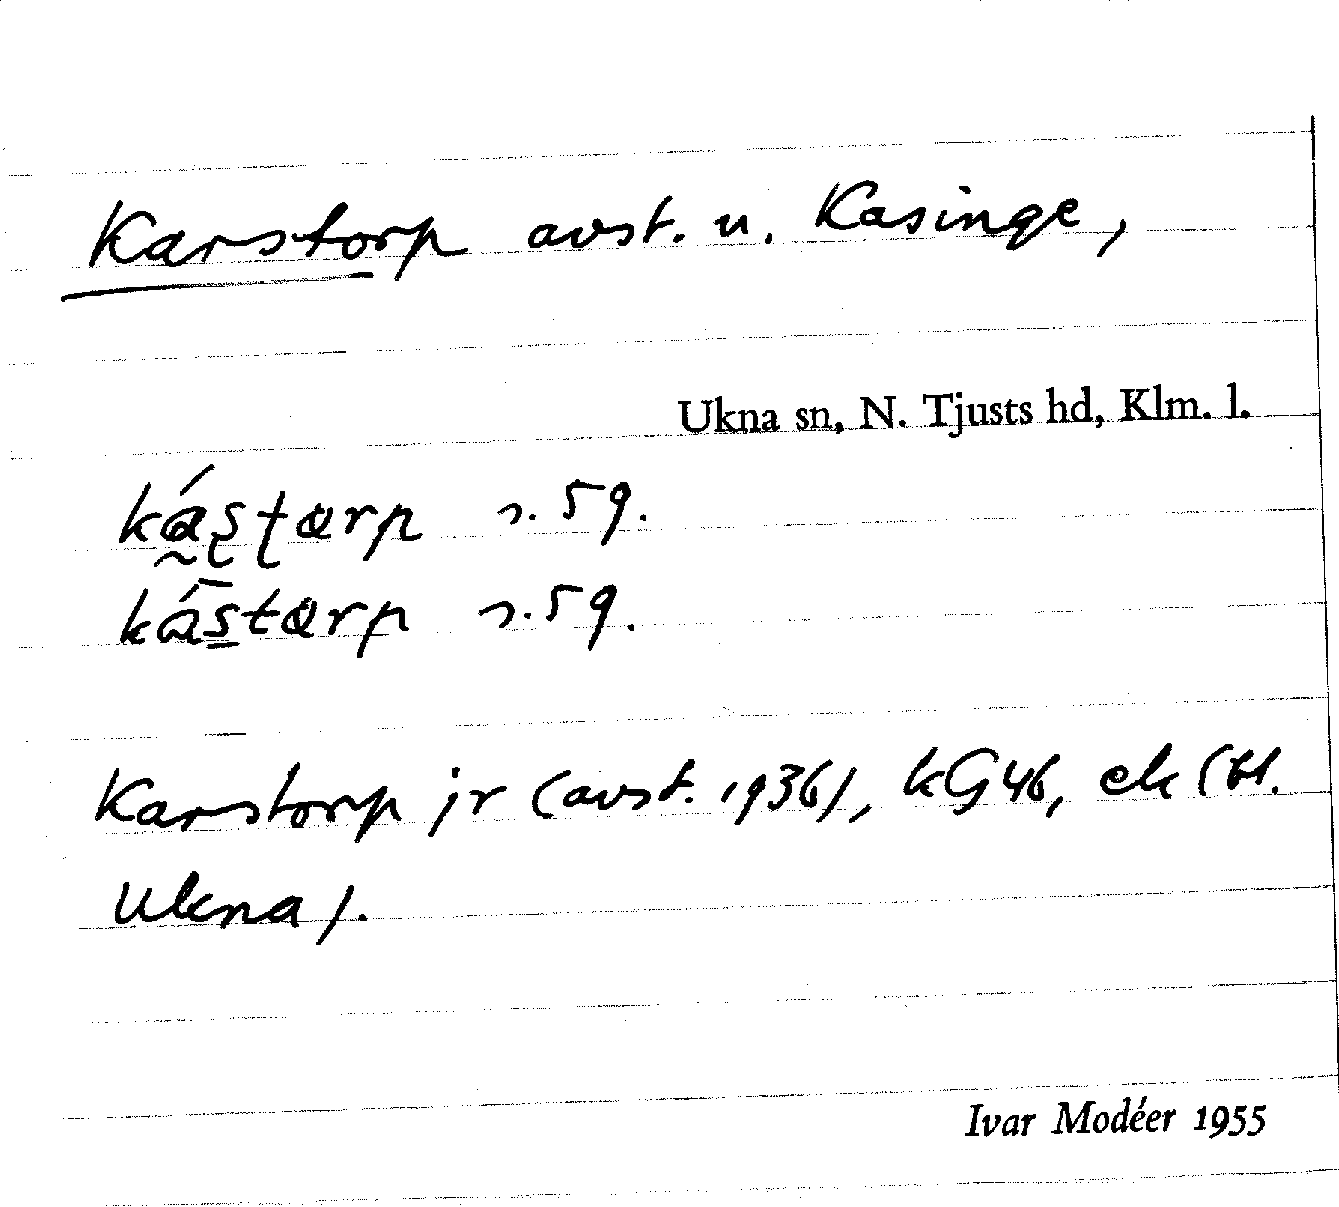 Karstorp avst. u. Kasinge,
Ukna sn, N. Tjusts hd, Klm. l.
ká̰ʂʈɑrp s. 59.
kás̲tɑrp s. 59.
Karstorp jr (avst. 1936), kG46, ek (bl.
Ukna).
Ivar Modéer 1955